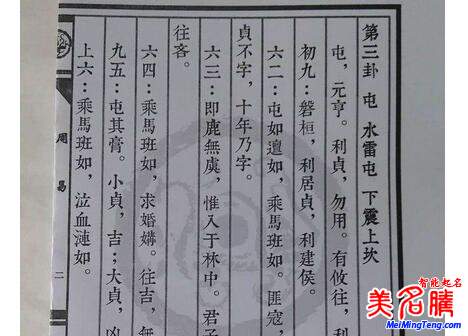 第三卦 屯 水雷屯 下震上坎
屯，元亨。利貞，勿用。有攸往，利
初九：磐桓，利居貞，利建侯。
六二：屯如邅如，乘馬班如。匪寇
貞不字，十年乃字。
六三：即鹿無虞，惟入于林中。君子
往吝。
六四：乘馬班如，求婚媾。往吉，無
九五：屯其膏。小貞，吉；大貞，凶
上六：乘馬班如，泣血漣如。
周易
二
智能起名
美名腾
MeiMingTeng.com